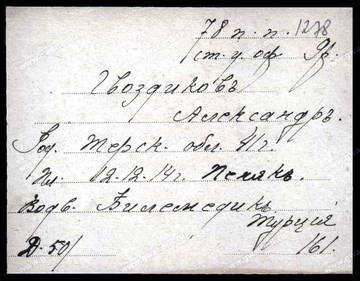 78 п. п. 1278
ст. у. оф. Яр.
Гвоздиковъ
Александръ.
Род. Терск. обл. 41 г.
Пл. 12.12.14 г. Пекякъ.
Водв. Билемедикъ
Турция
Д-50/ 161.